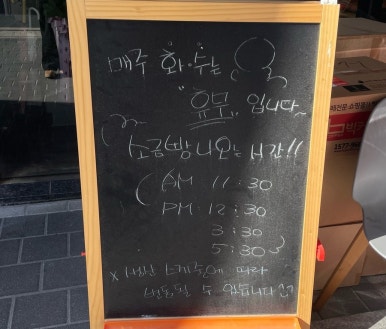 매주 화·수는
"휴무" 입니다~
소금빵 나오는 시간!!
AM 11:30
PM 12:30
3:30
5:30
x 생산 스케줄에 따라
변동될 수 있습니다